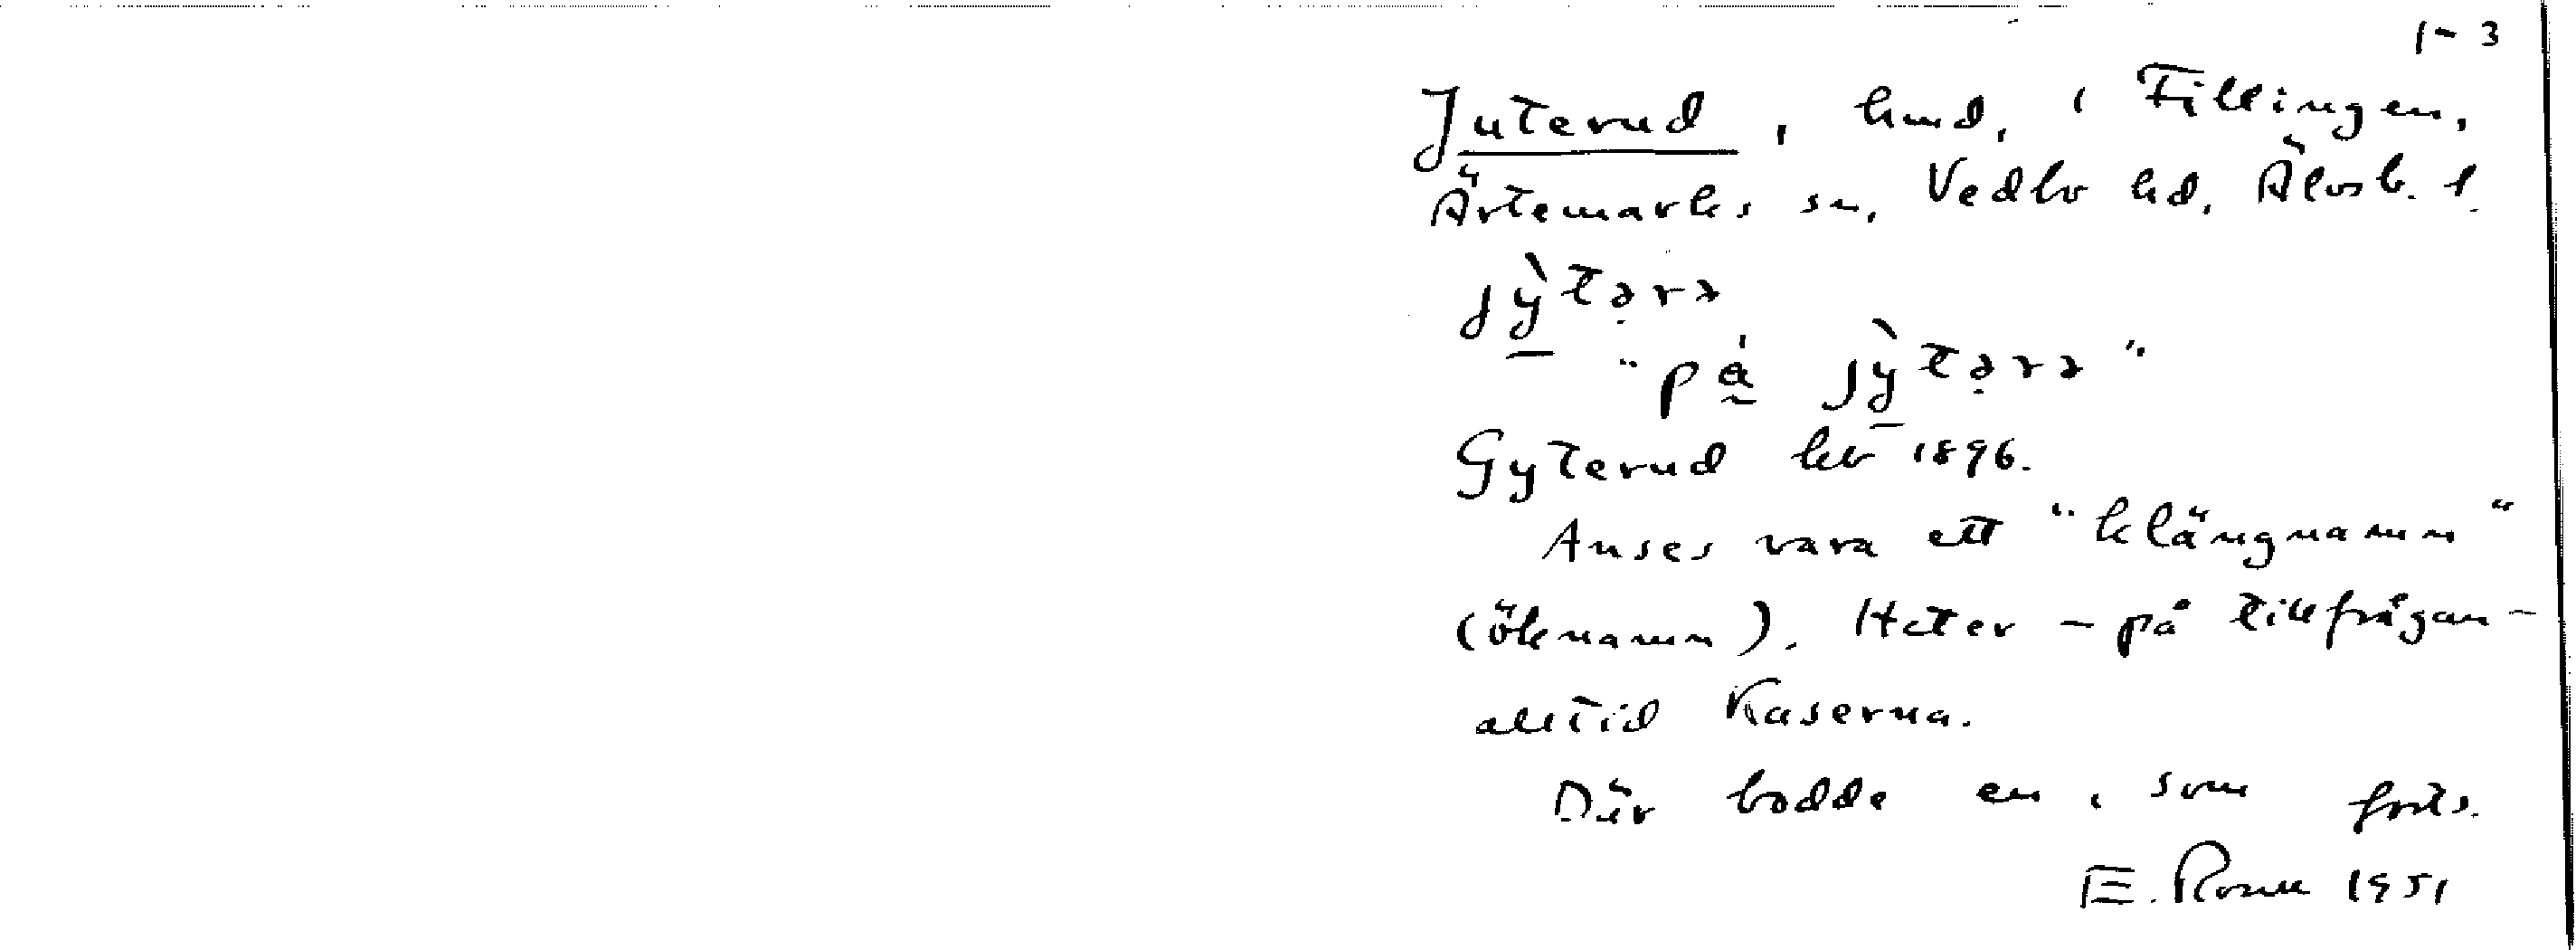 1-3
Juterud, hmd, i Fillingen,
Ärtemarks sn, Vedbo hd, Älvsb. l.
jỳtərə
"på jỳtərə"
Gyterud kb 1896.
Anses vara ett "klängnamn"
(öknamn). Heter - på tillfrågan -
alltid Kaserna.
Där bodde en, som forts.
E. 1951